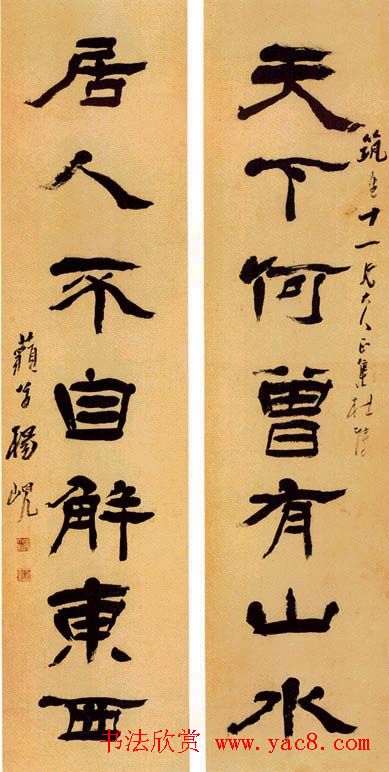 筑生十一兄大人正集杜陵
天下何曾有山水
居人不自解東西
藐翁楊峴
书法欣赏 www.yac8.com